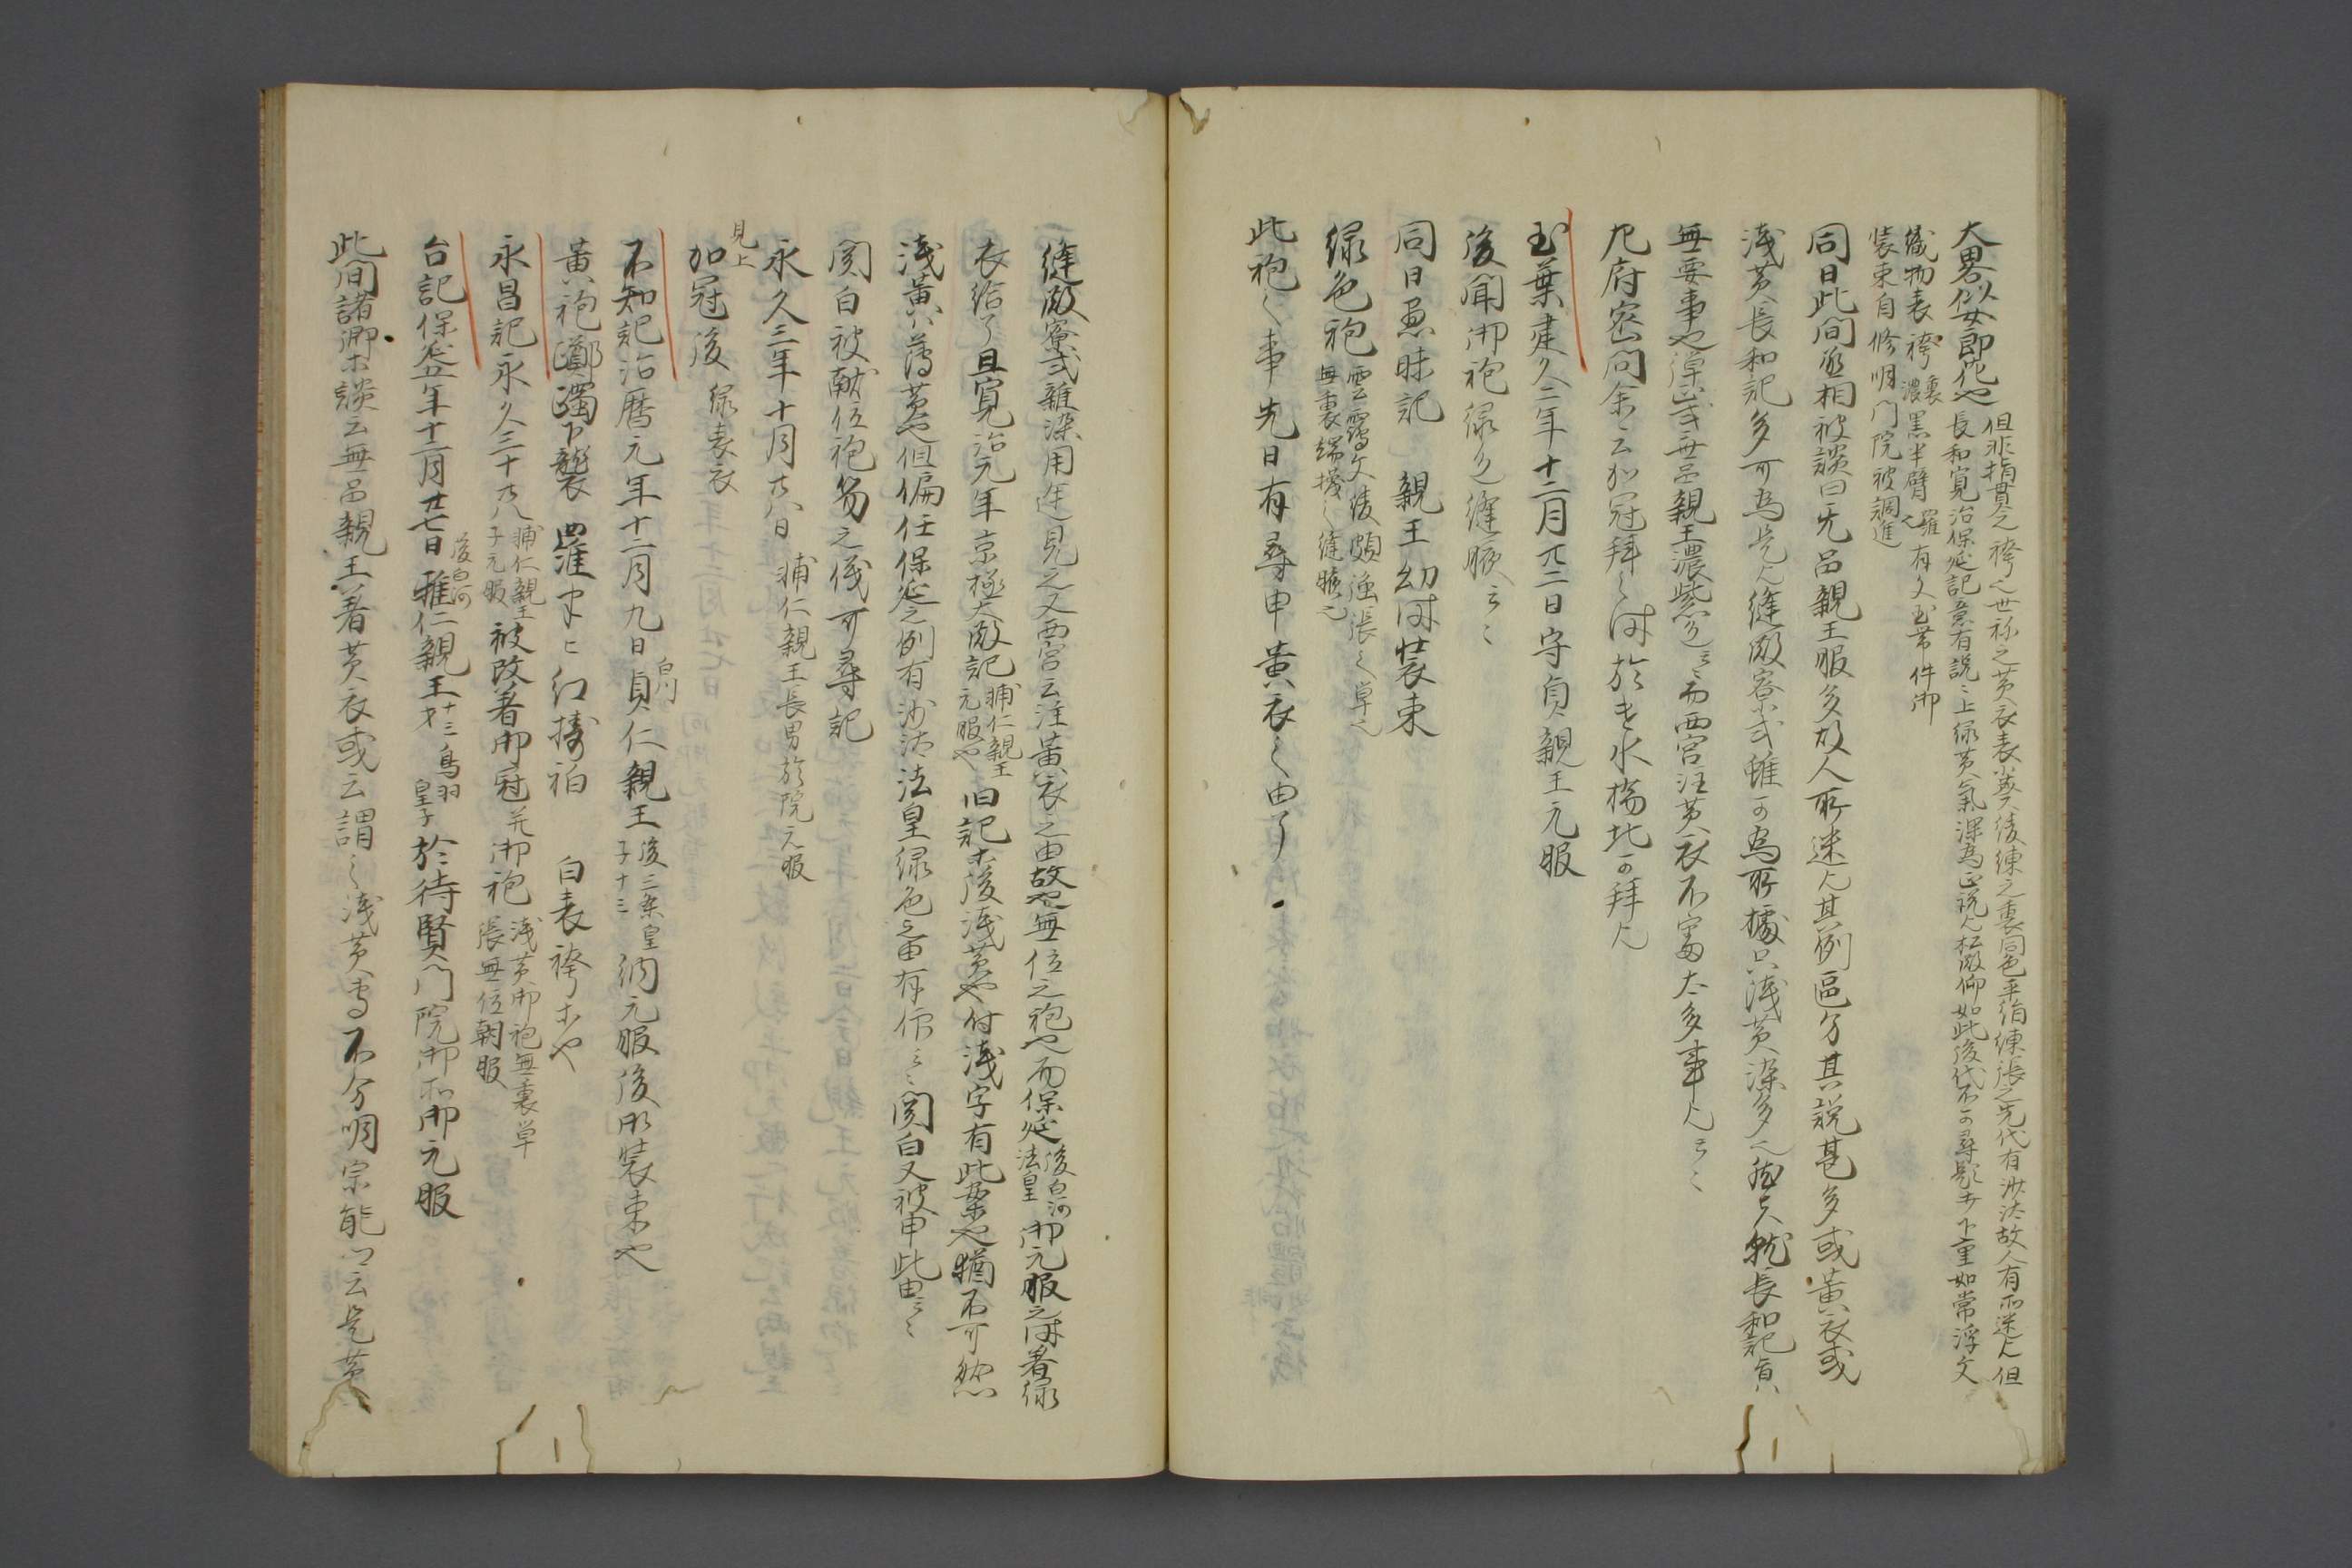 大畧似女郎花也
但非指貫之袴也世称之黄衣表strike綾練之裏同色平絹練張之先代有沙汰故人有所迷也但
長和寛治保延記意有説々上緑黄氣深為正説也松殿仰如此後代不可尋歟大下重如常浮文
織物表袴裏濃黒半臂羅也有文玉帯件御
装束自修明門院被調進
同日此間丞相被談曰无品親王服多故人所迷也其例區分其説甚多或黄衣或
浅黄長和記多可為是也縫殿寮式雖可為所據只浅黄深多也然只就長和記旨
無要事也弾正式無品親王濃紫色云々而西宮注黄衣不審太多事也云々
左府密問余云加冠拝之時於遣水橋北可拝也
玉葉建久二年十二月廿二日守貞親王元服
後聞御袍緑色縫腋云々
同日愚昧記 親王幼時装束
緑色袍
雲鶴文綾頗強張之単也
無裏端撚之縫腋也
此袍之事先日有尋申黄衣之由了
縫殿寮式雑染用途見之又西宮云注黄衣之由故也無位之袍也而保延後白河法皇御元服之時着緑
衣給了且寛治元年京極大殿記輔仁親王元服也旧記等後浅黄也付浅字有此案也猶不可然
浅黄ハ薄黄也但偏任保延之例有沙汰法皇緑色之由有仰云々関白又被申此由云々
関白被献位袍笏之儀可尋記
永久三年十月廿八日 輔仁親王長男於院元服
見上
加冠後 緑表衣
不知記治暦元年十二月九日貞仁親王
白川
後三条皇
子十三
納元服後御装束也
黄袍躑躅下襲 羅半臂 紅擣袙 白表袴等也
永昌記永久三十廿八
輔仁親王
子元服
被改着御冠并御袍
浅黄御袍無裏単
張無位朝服
台記保延五年十二月廿七日雅仁親王
後白河
年十三
鳥羽
皇子
於待賢門院御所御元服
此間諸卿等談云無品親王着黄衣或云謂之浅黄専不分明宗能卿云是黄